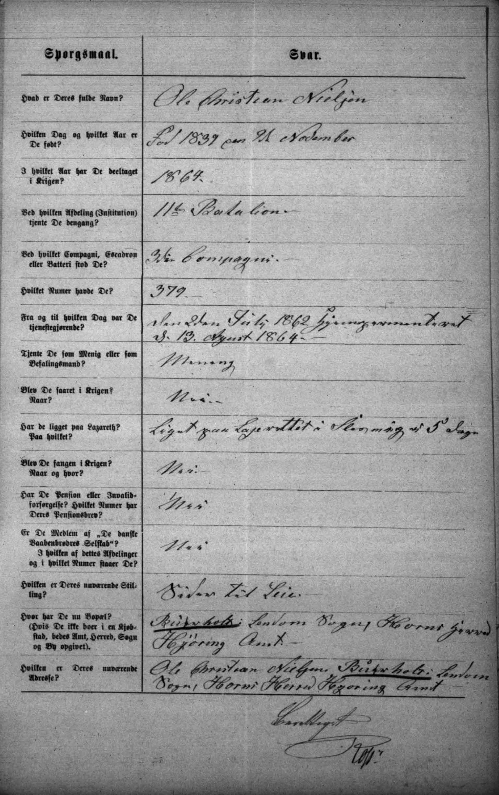 Spørgsmaal. Svar.
Hvad er Deres fulde Navn? Ole Christian Nielsen
Hvilken Dag og hvilket Aar er De født? Fød 1839 den November
I hvilket Aar har De deeltaget i Krigen? 1864.
Ved hvilken Afdeling (Institution) tjente De dengang? 11te Batalion
Ved hvilket Compagni, Escadron eller Batteri stod De? 3die Compagni.
Hvilket Numer havde De? 379.
Fra og til hvilken Dag var De tjenestgjørende? den 2den Juli 1862 Hjempermenteret
d. 13. Agust 1864.
Tjente De som Menig eller som Befalingsmand? Mening
Blev De saaret i Krigen? Naar? Nei.
Har De ligget paa Lazareth? Paa hvilket? Liget paa Lasarettet i 5 Dage
Blev De fangen i Krigen? Naar og hvor? Nei
Har De Pension eller Invalid-forsørgelse? Hvilket Numer har Deres Pensionsbrev? Nei
Er De Medlem af „De danske Vaabenbrødres Selskab"? I hvilken af dettes Afdelinger og i hvilket Numer staaer De? Nei
Hvilken er Deres nuværende Stilling? Sider til Leie.
Hvor har De nu Bopæl? (Hvis De ikke boer i en Kjøbstad, bedes Amt, Herred, Sogn og By opgivet). Lendom Sogn, Horns Herred
Hjøring Amt.
Hvilken er Deres nuværende Adresse? Ole Christian Nielsen Lendom
Sogn, Horns Herred Hjøring Amt